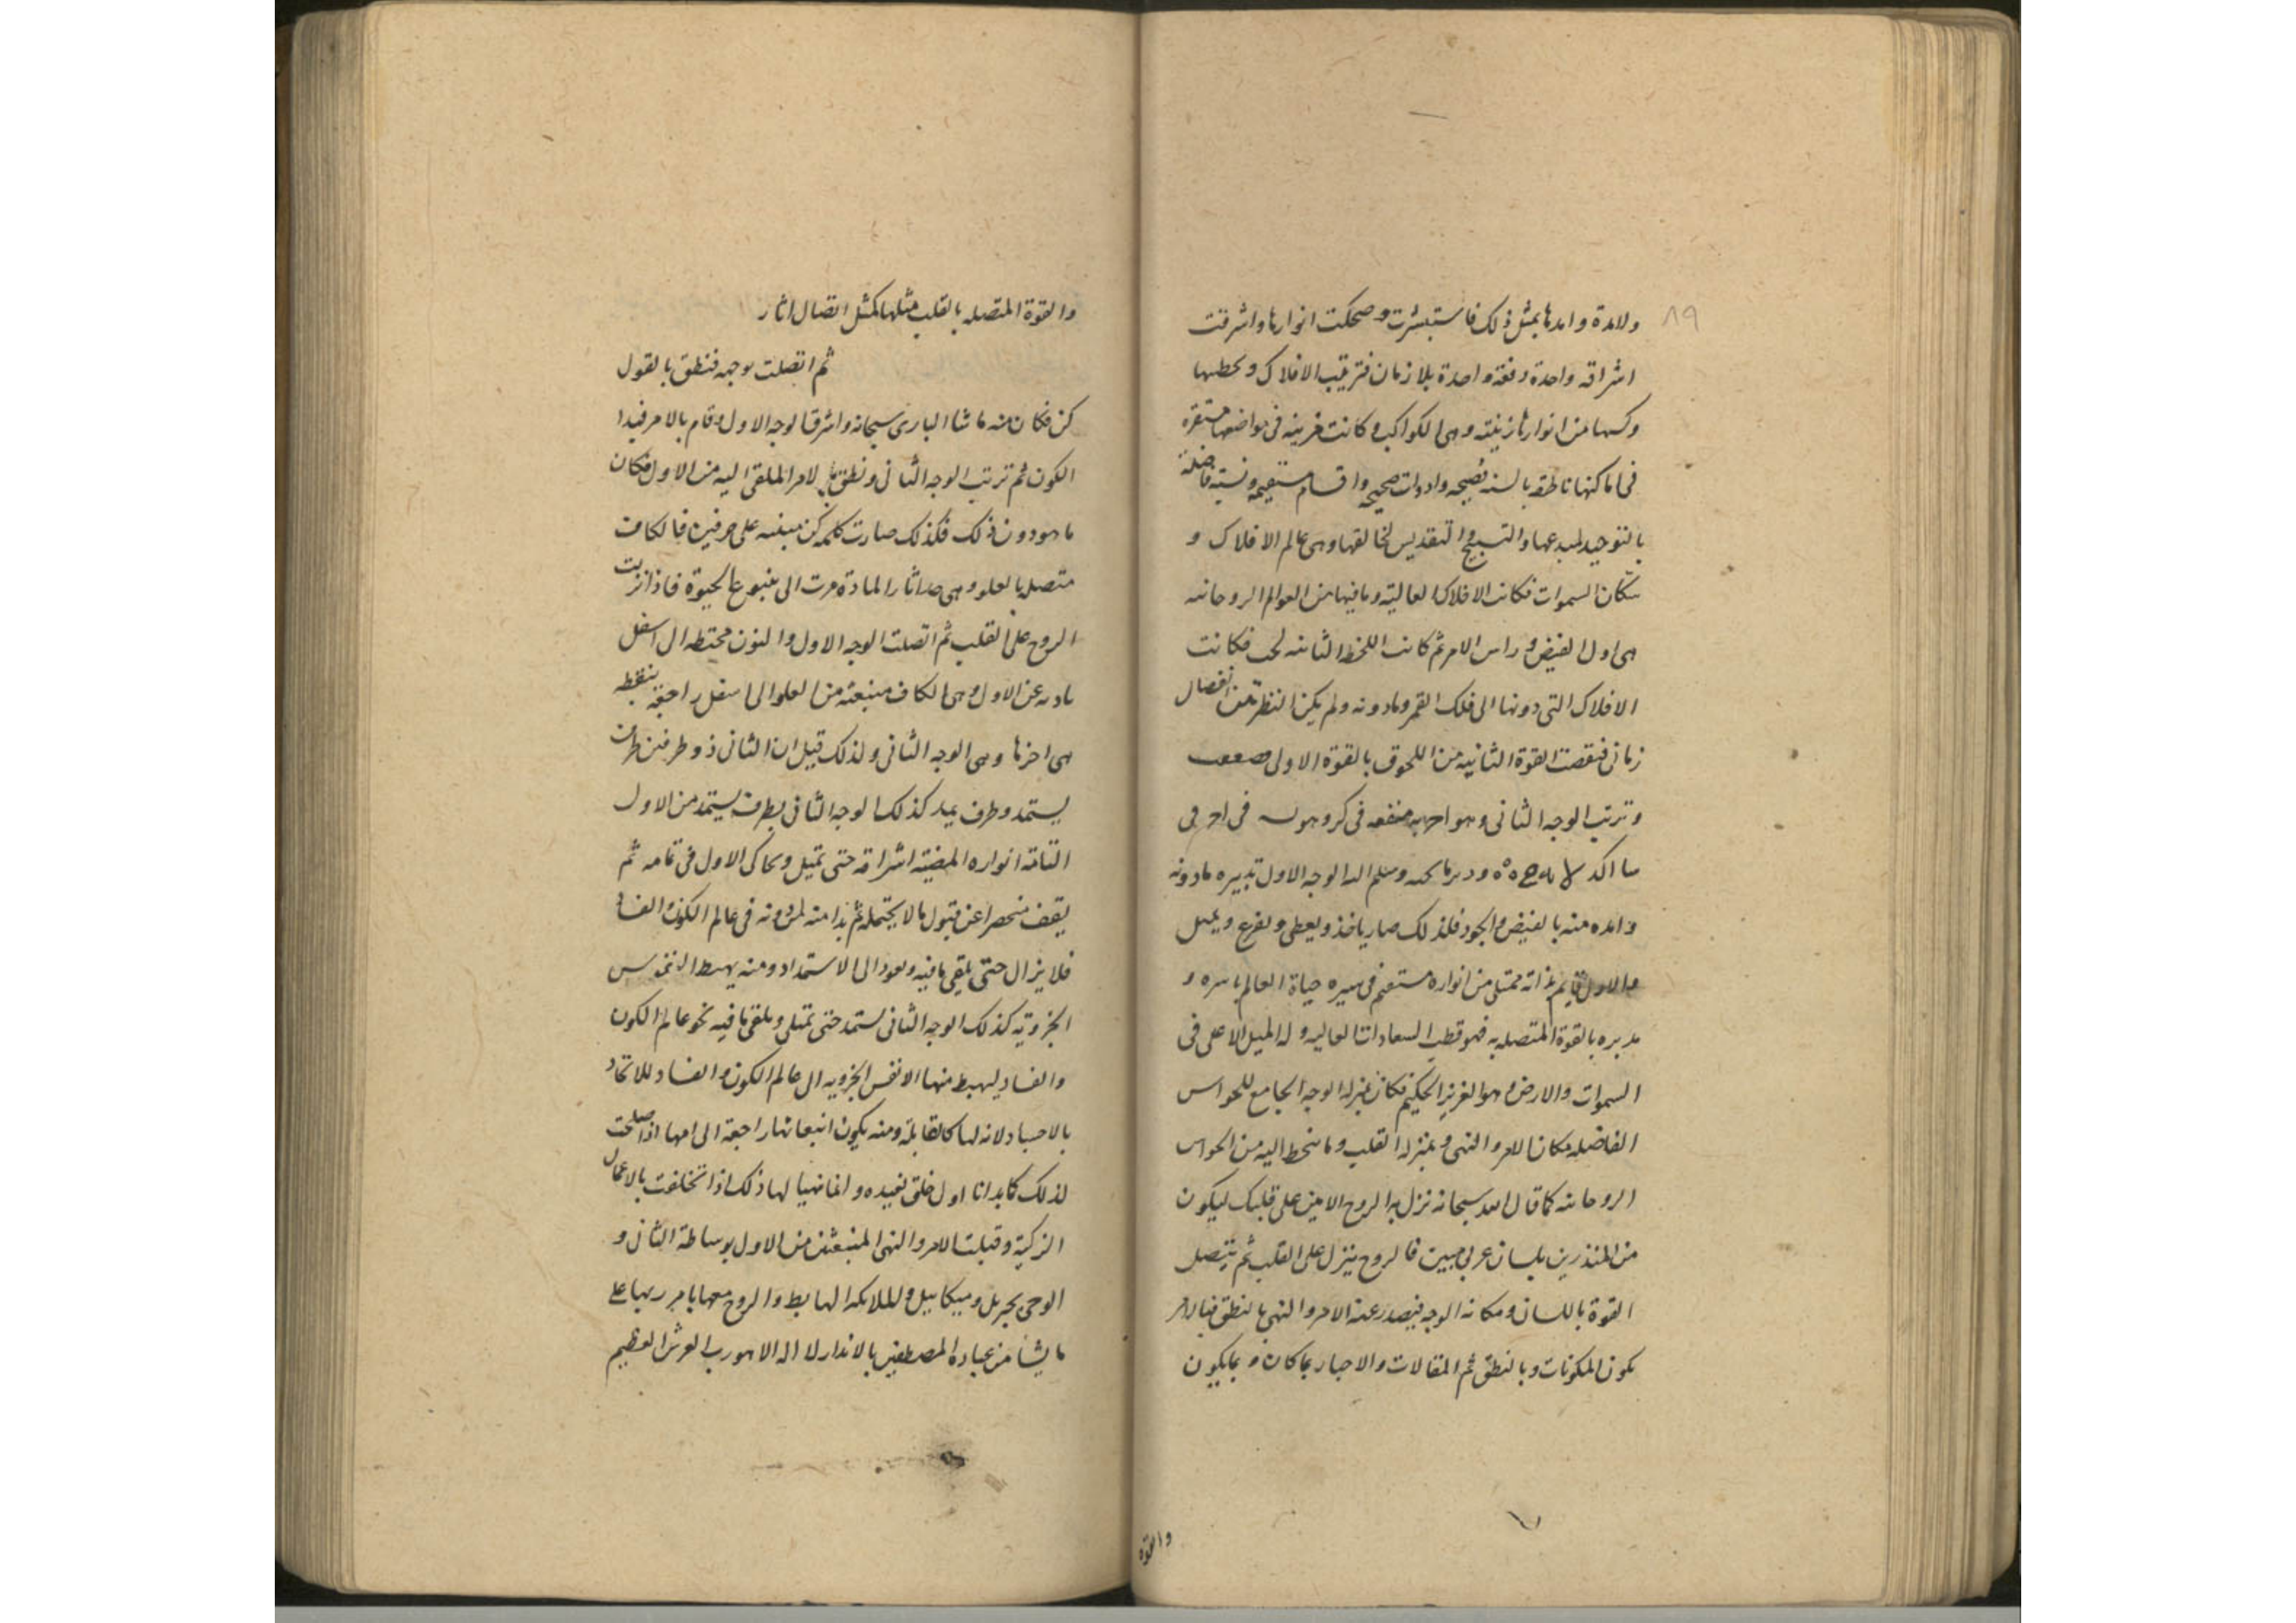 ٨٩
ولامدة وامدها بمثل ذلك فاستبشرت وضحكت انوارها واشرقت
اشراقه واحدة دفعة واحدة بلا زمان فترتب الافلاك و
وكسها من انوارها زينته وهى الكواكب وكانت فى مواضعها مستقرة
فى اماكنها ناطقه بالسنه فصيحه وادوات صحيحه واقسام مستقيمه ونسبة فاضلة
بالتوحيد لمبدعها والتسبيح والتقديس لخالقها وهى عالم الافلاك و
سكان السموات فكانت الافلاك العالية وما فيها من العوالم الروحانيه
هى اول الفيض وراس الامر ثم كانت اللحظه الثانيه فكانت
الافلاك التى دونها الى فلك القمر وما دونه ولم يكن النظر عن انفصال
زمانى فنقصت القوة الثانيه من اللحوق بالقوة الاولى
وترتب الوجه الثانى وهو فى
الوجه الاول تدبيره ما دونه
وامده منه بالفيض والجود فلذلك صار ياخذ ويعطى ويفرغ و
والاول قايم بذاته ممتلى من انواره مستقيم فى سيره حياة العالم باسره و
مدبره بالقوة المتصله به فهو قطب السعادات العاليه وله المثل الاعلى فى
السموات والارض وهو العزيز الحكيم فكان بمنزله الوجه الجامع للحواس
الفاضله مكان الامر والنهى وبمنزله القلب وما ينحط اليه من الحواس
الروحانيه كما قال الله سبحانه نزل به الروح الامين على قلبك ليكون
من المنذرين بلسان عربى مبين فالروح ينزل على القلب ثم يتصل
القوة باللسان ومكانه الوجه فيصدر عنه الامر والنهى بالنطق فبالامر
يكون المكونات وبالنطق ثم المقالات والاخبار بما كان وبما يكون
والقوة
والقوة المتصله بالقلب مثلها كمثل اتصال اثار
ثم اتصلت بوجهه فنطق بالقول
كن فكان منه ما شا البارى سبحانه واشرق الوجه الاول وقام بالامر فبدا
الكون ثم ترتب الوجه الثانى ونطق بالامر الملقى اليه من الاول فكان
ما هو دون ذلك فكذلك صارت كلمه كن مبنيه على حرفين فالكاف
متصل بالعلو وهى اثار المادة سرت الى ينبوع الحيوة فاذا نزلت
الروح على القلب ثم اتصلت الوجه الاول والنون الى اسفل
عن الاول وهى الكاف منبعثه من العلو الى اسفل راجعة بنقطه
هى اخرها وهى الوجه الثانى ولذلك قيل ان الثانى ذو طرفين طرف
يستمد وطرف يمد كذلك الوجه الثانى بطرف يستمد من الاول
التامة انواره المضيئة اشراقه حتى يمتلى ويحاكى الاول فى تمامه ثم
يقف منحصرا عن قبول ما لا يحتمله ثم بدا منه لمن دونه فى عالم الكون والفساد
فلا يزال حتى يلقى ما فيه ويعود الى الاستمداد ومنه يهبط النفوس
الجزوية كذلك الوجه الثانى يستمد حتى يمتلى ويلقى ما فيه نحو عالم الكون
والفساد ليهبط منها الانفس الجزويه الى عالم الكون والفساد للاتحاد
بالاجساد لانه لها كالقابلة ومنه يكون انبعاثها راجعة الى امها اذا صلحت
لذلك كما بدانا اول خلق نعيده وانما تهيا لها ذلك اذا تخلفت بالاعمال
الزكية وقبلت الامر والنهى المنبعثين من الاول بوساطة الثانى و
الوحى بجبريل وميكاييل والملائكه الهابط والروح معها بامر ربها على
ما يشا من عباده المصطفين بالانذار لا اله الا هو رب العرش العظيم